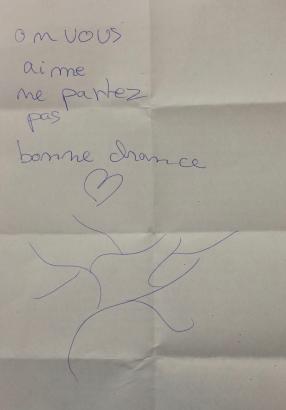 on vous
aime
ne partez
pas
bonne chance